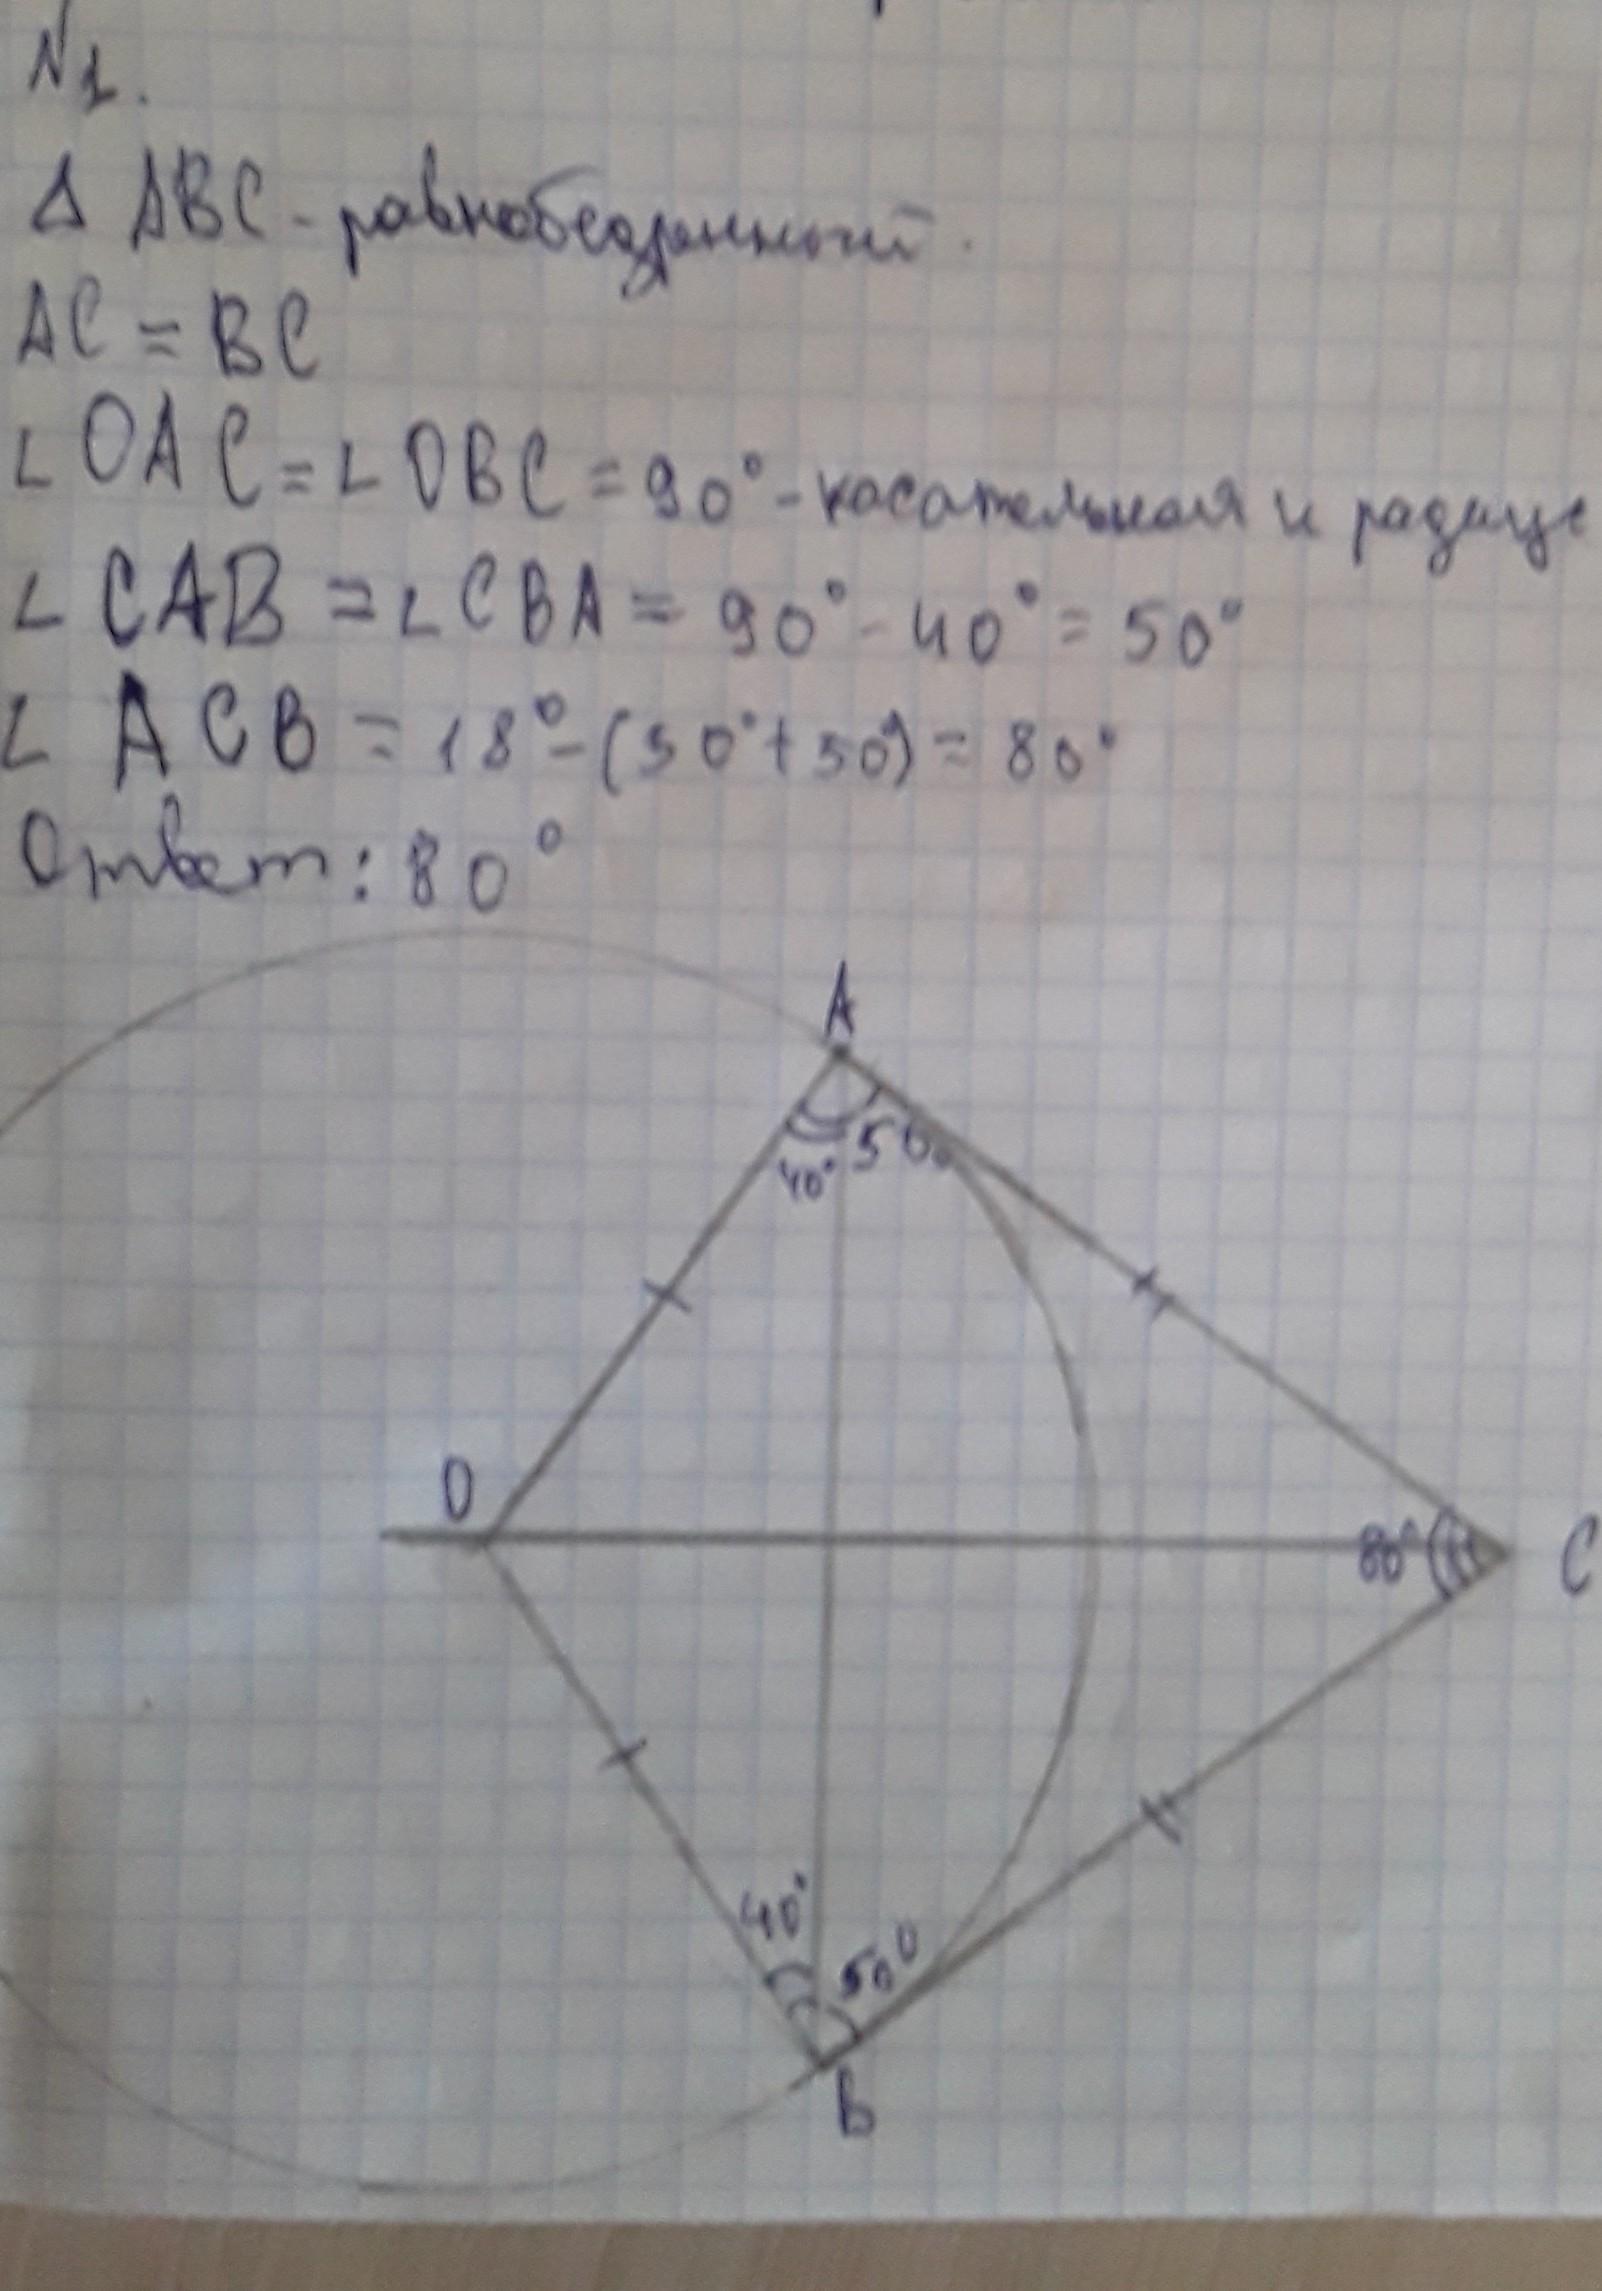 N1.
Δ ABC - равнобедренный.
AC = BC
∠ OAC = ∠ OBC = 90° - касательная и радиус
∠ CAB = ∠ CBA = 90° - 40° = 50°
∠ ACB = 18° - (50° + 50°) = 80°
Ответ: 80°
A
40° 50°
O
80° C
40° 50°
B